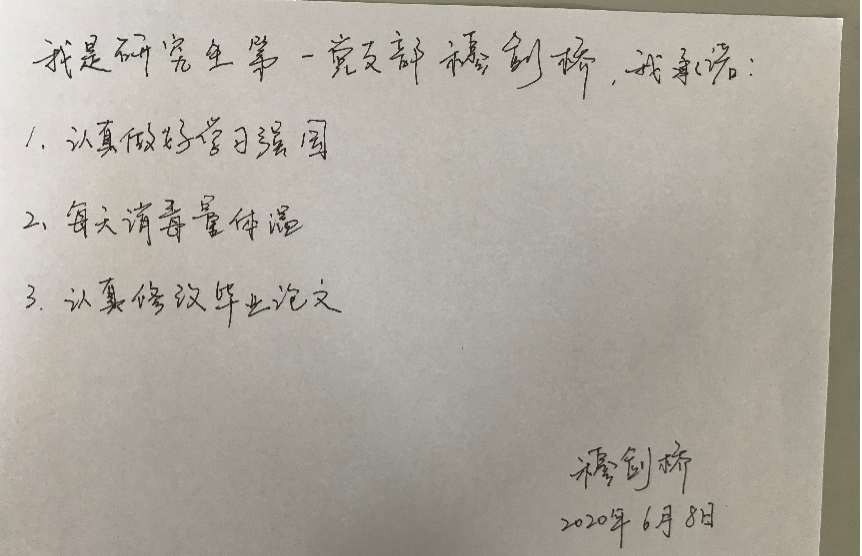 我是研究生第一党支部穆剑桥,我承诺:
1. 认真做好学习强国
2、每天消毒量体温
3. 认真修改毕业论文
穆剑桥
2020年6月8日